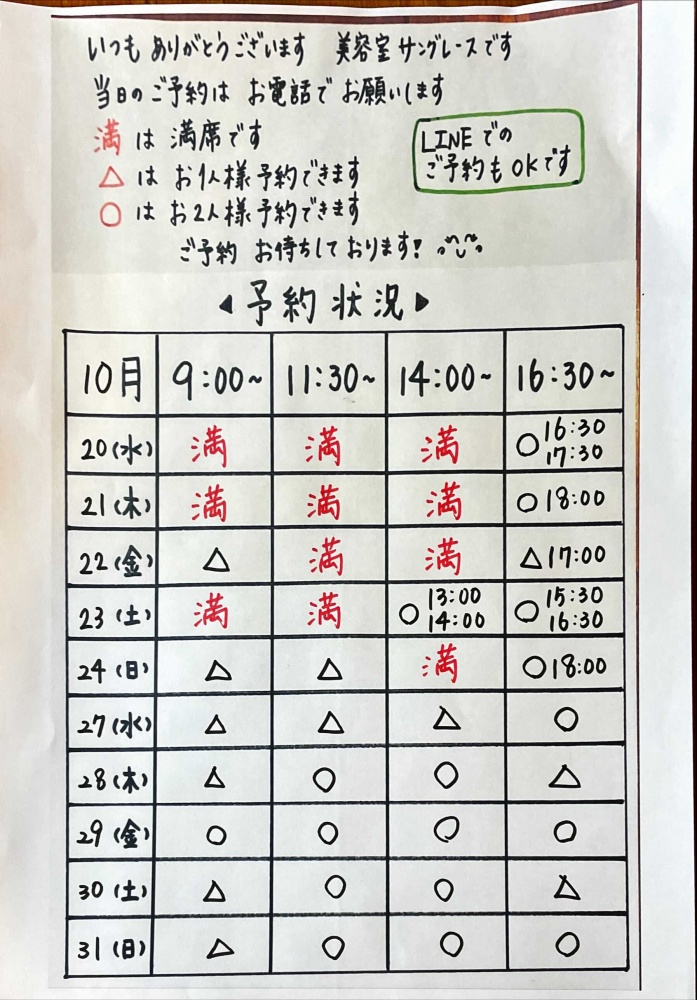 いつも ありがとうございます 美容室 サングレースです
当日の ご予約は お電話で お願いします
満 は 満席です
△ は お1人様 予約できます
○ は お2人様 予約できます
LINEでの
ご予約も OKです
ご予約 お待ちしております!
◀ 予約状況 ▶
10月 9:00~ 11:30~ 14:00~ 16:30~
20(水) 満 満 満 ○ 16:30 17:30
21(木) 満 満 満 ○ 18:00
22(金) △ 満 満 △ 17:00
23(土) 満 満 ○ 13:00 14:00 ○ 15:30 16:30
24(日) △ △ 満 ○ 18:00
27(水) △ △ △ ○
28(木) △ ○ ○ △
29(金) ○ ○ ○ ○
30(土) △ ○ ○ △
31(日) △ ○ ○ ○